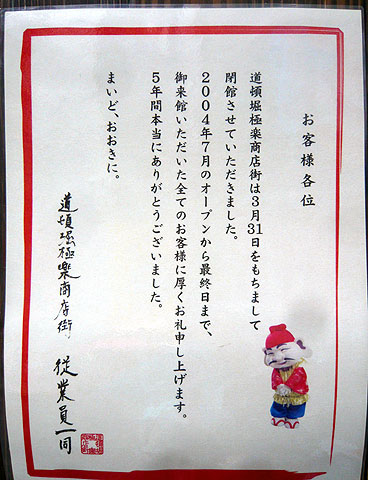 お客様各位
道頓堀極楽商店街は3月31日をもちまして
閉館させていただきました。
2004年7月のオープンから最終日まで、
御来館いただいた全てのお客様に厚くお礼申し上げます。
5年間本当にありがとうございました。
まいど、おおきに。
道頓堀極楽商店街
従業員一同